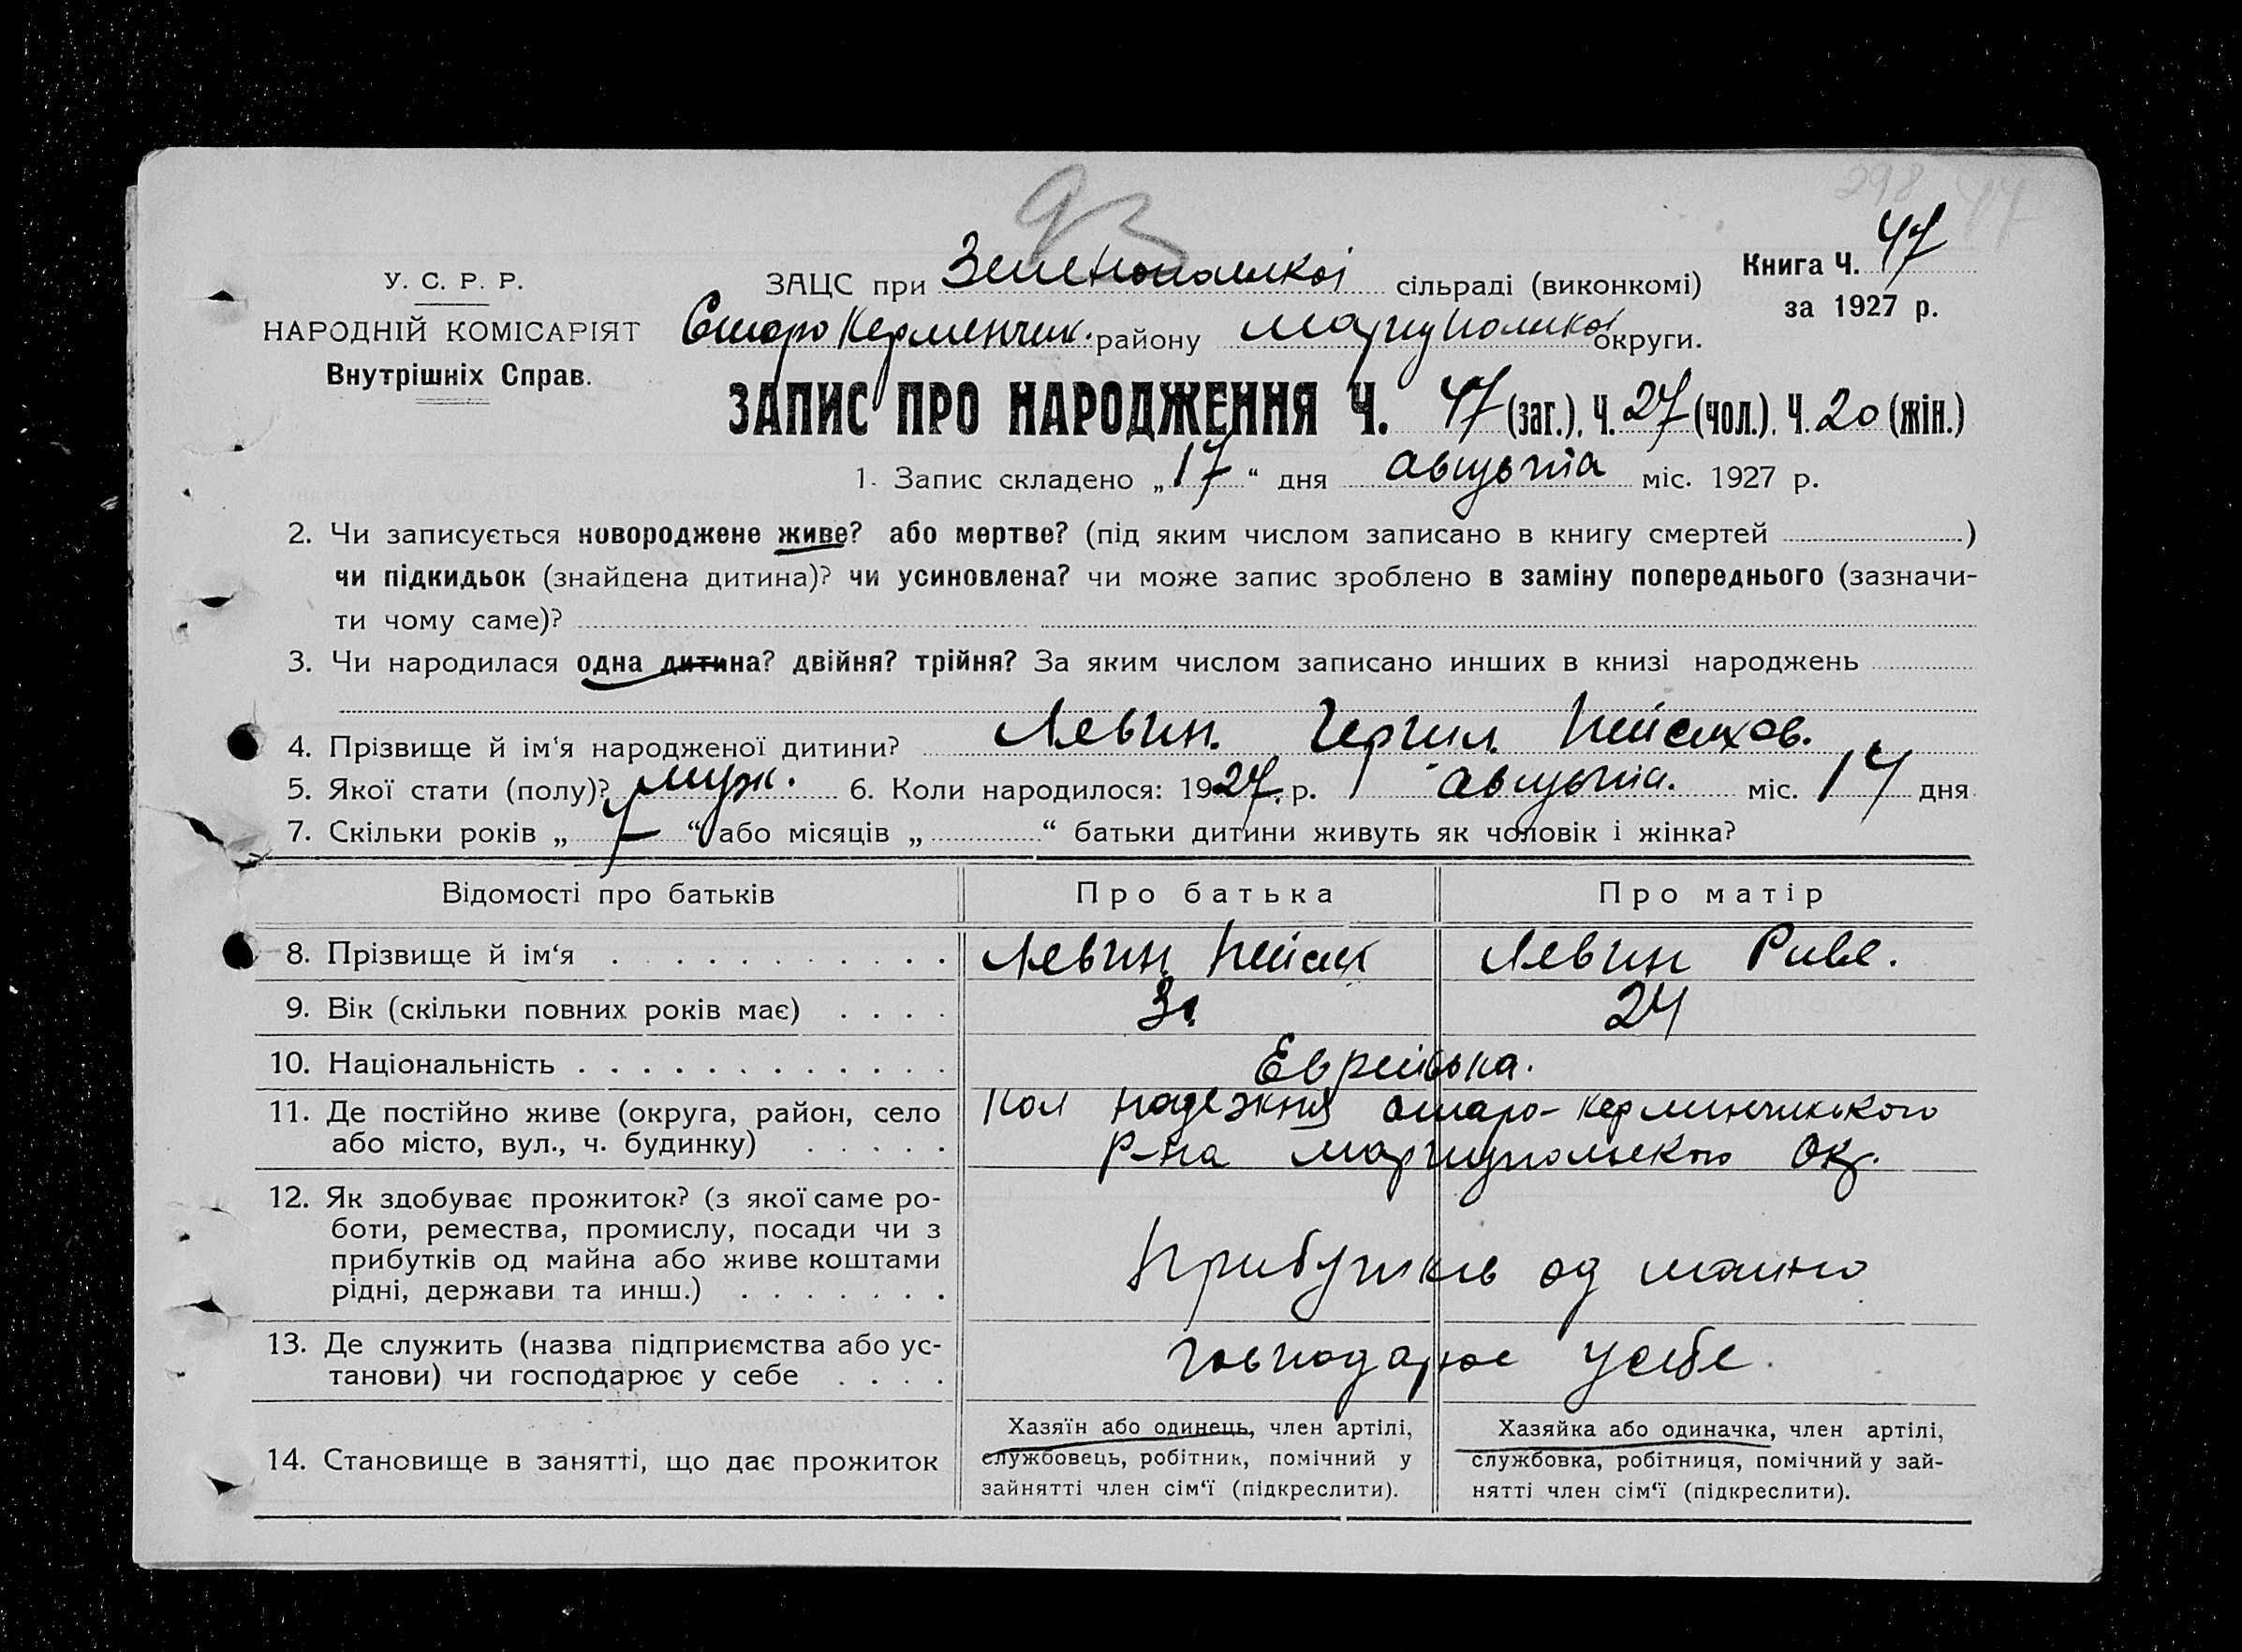 93
298 47
У. С. Р. Р.
НАРОДНІЙ КОМІСАРІЯТ
Внутрішніх Справ.
ЗАЦС при Зеленопольскої сільраді (виконкомі)
Старо Керменчик. району Маріупольскої округи.
Книга Ч. 47
за 1927 р.
ЗАПИС ПРО НАРОДЖЕННЯ Ч. 47 (заг.), Ч. 27 (чол.), Ч. 20 (жін.)
1. Запис складено „17“ дня августа міс. 1927 р.
2. Чи записується новороджене живе? або мертве? (під яким числом записано в книгу смертей )
чи підкидьок (знайдена дитина)? чи усиновлена? чи може запис зроблено в заміну попереднього (зазначи-
ти чому саме)?
3. Чи народилася одна дитина? двійня? трійня? За яким числом записано инших в книзі народжень
4. Прізвище й ім‘я народженої дитини? Левин. Пейсахов.
5. Якої стати (полу)? муж. 6. Коли народилося: 1927 р. августа. міс. 14 дня
7. Скільки років „7“ або місяців „ “ батьки дитини живуть як чоловік і жінка?
Відомості про батьків Про батька Про матір
8. Прізвище й ім‘я Левин Пейсах Левин Риве.
9. Вік (скільки повних років має) 31 24
10. Національність Еврейська.
11. Де постійно живе (округа, район, село Кол надежня старо-керменчикського
або місто, вул., ч. будинку) р-на маріупольского Ок.
12. Як здобуває прожиток? (з якої саме ро-
боти, ремества, промислу, посади чи з
прибутків од майна або живе коштами Прибутків од майна
рідні, держави та инш.)
13. Де служить (назва підприємства або ус- господарює у себе.
танови) чи господарює у себе
14. Становище в занятті, що дає прожиток
Хазяїн або одинець, член артілі,
службовець, робітник, помічний у
зайнятті член сім‘ї (підкреслити).
Хазяйка або одиначка, член артілі,
службовка, робітниця, помічний у зай-
нятті член сім‘ї (підкреслити).